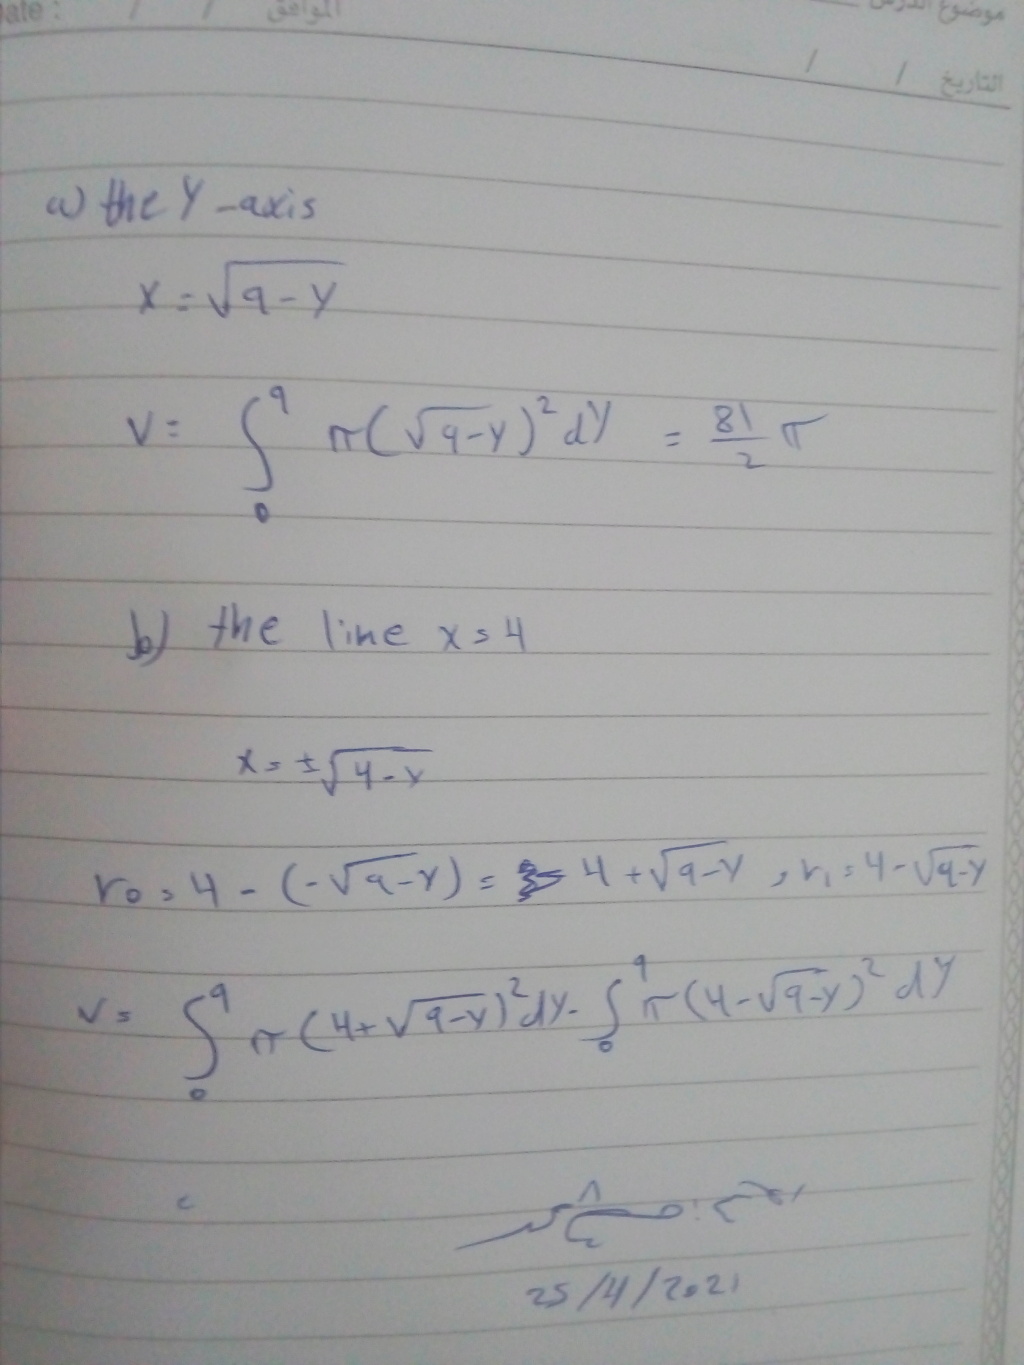 Date : / / الموافق
موضوع الدرس
التاريخ / /
a) the Y-axis
x = √(9-y)
V = ∫₀⁹ π(√(9-y))² dy = 81/2 π
b) the line x = 4
x = ±√(4-y)
r₀ = 4 - (-√(9-y)) = 4 + √(9-y) , r₁ = 4 - √(9-y)
V = ∫₀⁹ π(4+√(9-y))² dy - ∫₀⁹ π(4-√(9-y))² dy
25/4/2021